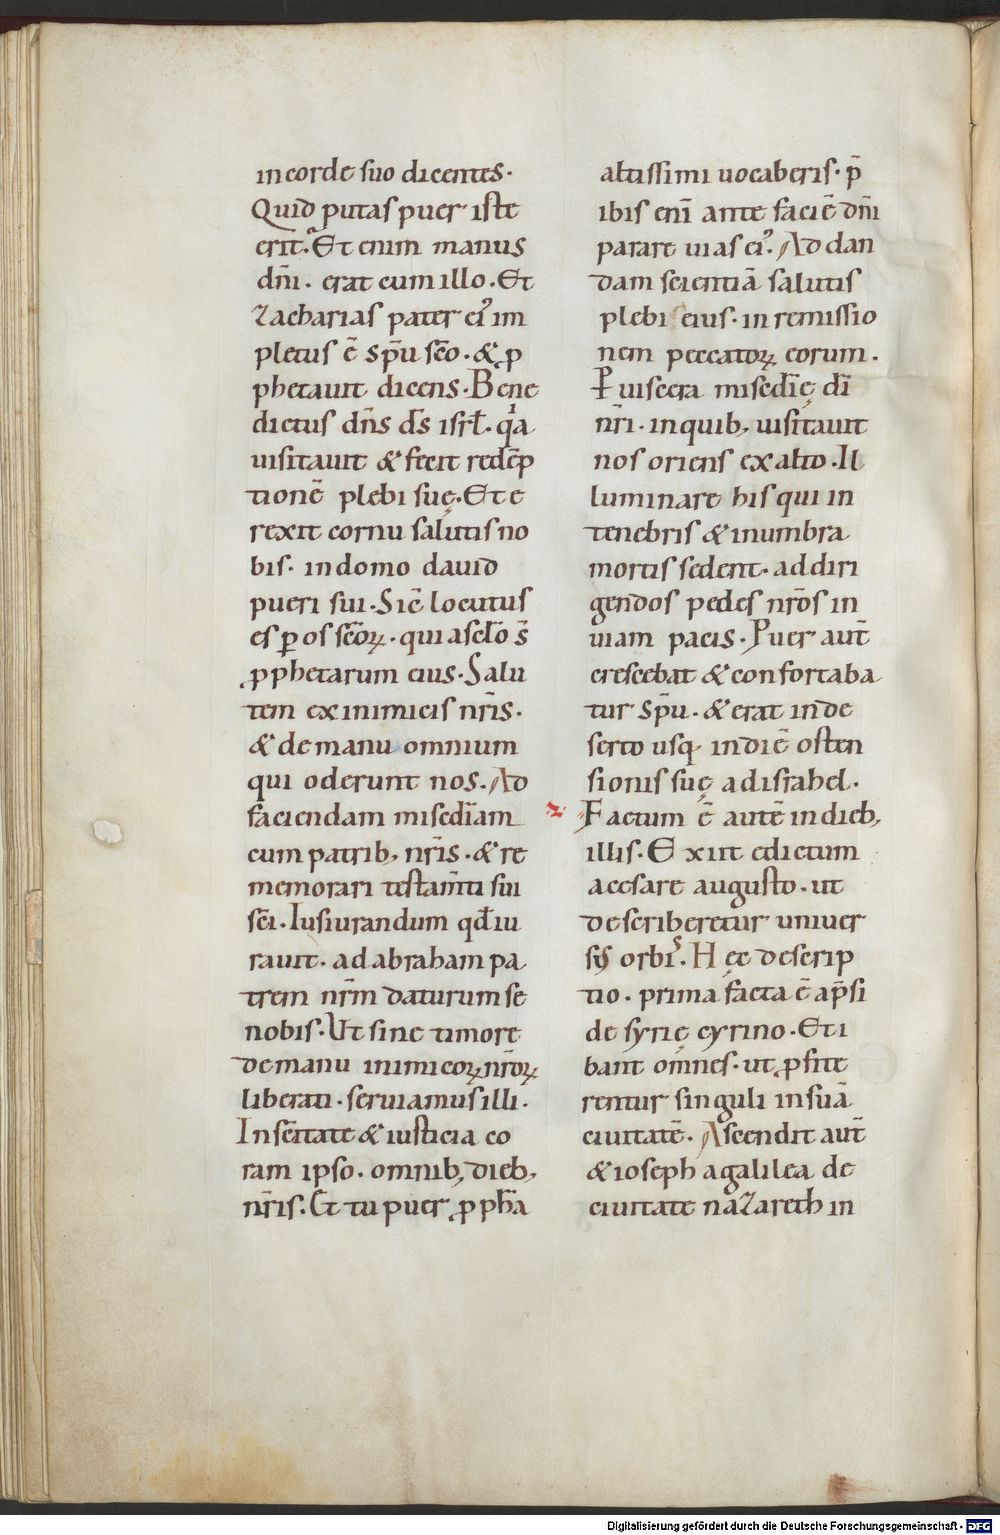 in corde suo dicentes·
Quid putas puer iste
erit. Et enim manus
dñi· erat cum illo· Et
Zacharias pater ei᾽ im
pletus ē sp̄u sc̄o· & ꝓ
phetauit dicens· Bene
dictus dn̄s ds̄ isrł· qa
uisitauit & fecit redēp
tionē plebi suę· Et e
rexit cornu salutis no
bis· in domo dauid
pueri sui· Sic̄ locutus
es ꝑ os sc̄oꝝ· qui a seclo s̄
ꝓphetarum eius· Salu
tem ex inimicis nr̄is·
& de manu omnium
qui oderunt nos· Ad
faciendam misedīam
cum patrib, nr̄is· & re
memorari testam̄ti sui
sc̄i· Iusiurandum qđ iu
rauit· ad abraham pa
trem nr̄m daturum se
nobis· Ut sine timore
de manu inimicoꝝ nr̄oꝝ
liberati· seruiamus illi·
In sc̄itate & iusticia co
ram ipso· omnib, dieb,
nr̄is· Et tu puer ꝓph̄a
altissimi uocaberis· p̄
ibis enī ante faciē dn̄i
parare uias ei᾽· Ad dan
dam scientiā salutis
plebi eius· in remissio
nem peccatoꝝ eorum·
P uiscera misedīę dī
nr̄i· in quib, uisitauit
nos oriens ex alto· Il
luminare his qui in
tenebris & in umbra
mortis sedent· ad diri
gendos pedes nr̄os in
uiam pacis· Puer aut̄
crescebat & confortaba
tur sp̄u· & erat in de
serto usq· in diē osten
sionis suę ad israhel·
Factum ē autē in dieb,
illis· Exiit edictum
a cesare augusto· ut
describeretur uniuer
sus orbis· Hęc descrip
tio· prima facta ē a p̄si
de syrię cyrino· Et i
bant omnes· ut ꝓfite
rentur singuli in suā
ciuitatē· Ascendit aut̄
& ioseph a galilea de
ciuitate naZareth in
Digitalisierung gefördert durch die Deutsche Forschungsgemeinschaft - DFG